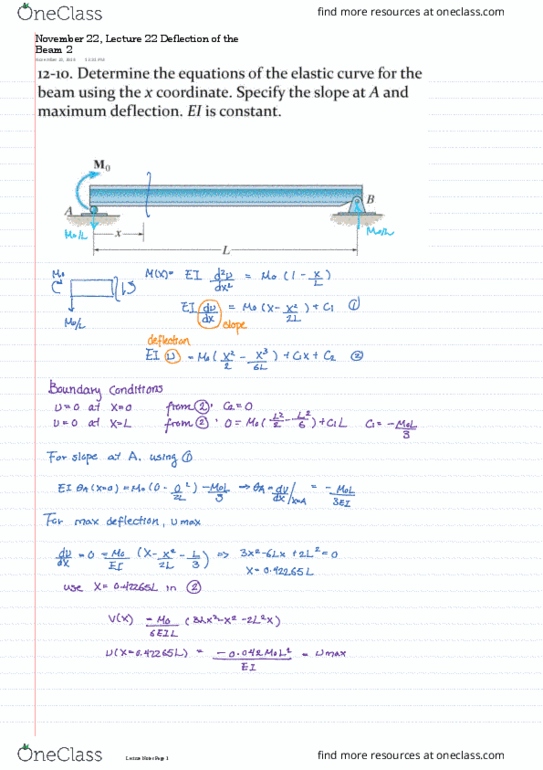 OneClass
find more resources at oneclass.com
November 22, Lecture 22 Deflection of the
Beam 2
12-10. Determine the equations of the elastic curve for the
beam using the x coordinate. Specify the slope at A and
maximum deflection. EI is constant.
M₀
A
B
Mo/L
x
Mo/L
L
Mo
Mo/L
M(x) = EI d²υ/dx² = Mo (1 - x/L)
EI dυ/dx = Mo (x - x²/2L) + C₁ ①
slope
deflection
EI υ = Mo (x²/2 - x³/6L) + C₁x + C₂ ②
Boundary Conditions
υ=0 at x=0 from ②: C₂=0
υ=0 at x=L from ②: 0 = Mo (L²/2 - L²/6) + C₁L C₁ = -MoL/3
For slope at A, using ①
EI θA (x=0) = Mo (0 - 0²/2L) - MoL/3 → θA = dυ/dx|x=A = -MoL/3EI
For max deflection, υmax
dυ/dx = 0 = Mo/EI (x - x²/2L - L/3) => 3x² - 6Lx + 2L² = 0
x = 0.42265L
use x = 0.42265L in ②
υ(x) = Mo/6EIL (3Lx² - x³ - 2L²x)
υ(x=0.42265L) = -0.042 MoL²/EI = υmax
Lecture Notes Page 1
OneClass
find more resources at oneclass.com